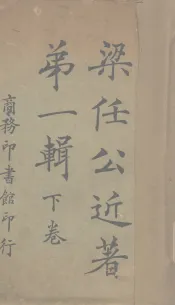 梁任公近著
第一輯下卷
商務印書館印行